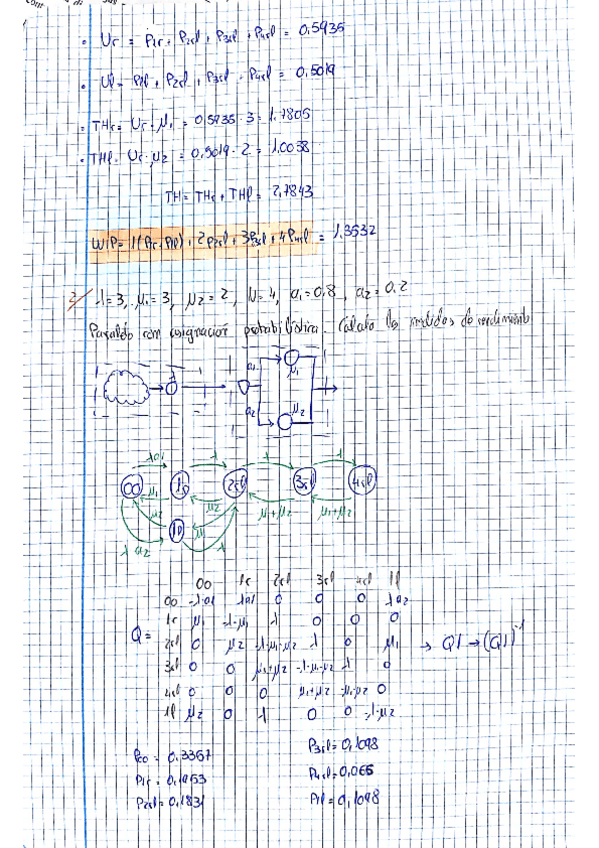 • Ur = P1r + P2rl + P3rl + P4rl = 0,5935
• Ul = P1l + P2rl + P3rl + P4rl = 0,5019
• THr = Ur · μ1 = 0,5935 · 3 = 1,7805
• THl = Ur · μ2 = 0,5019 · 2 = 1,0038
TH = THr + THl = 2,7843
WIP = 1(P1r + P1l) + 2P2rl + 3P3rl + 4P4rl = 1,3532
2/ λ=3, μ1=3, μ2=2, N=4, a1=0.8, a2=0.2
Paralelo con asignación probabilística. Calcula las medidas de rendimiento
λ a1 μ1
a2 μ2
λa1 λ λ λ
00 1r 2rl 3rl 4rl
μ1 μ2 μ1+μ2 μ1+μ2
μ2 1l μ1
λ a2 λ
00 1r 2rl 3rl 4rl 1l
00 -λ·a1 λa1 0 0 0 λa2
1r μ1 -λ-μ1 λ 0 0 0
Q = 2rl 0 μ2 -λ-μ1-μ2 λ 0 μ1 → Q1 → (Q1)⁻¹
3rl 0 0 μ1+μ2 -λ-μ1-μ2 λ 0
4rl 0 0 0 μ1+μ2 -μ1-μ2 0
1l μ2 0 λ 0 0 -λ-μ2
P00 = 0,3357 P3rl = 0,1098
P1r = 0,1953 P4rl = 0,066
P2rl = 0,1831 P1l = 0,1098